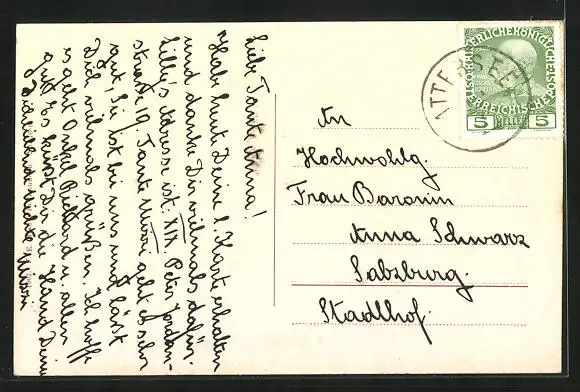 Liebe Tante Anna!
Habe heute Deine l. Karte erhalten
und danke Dir vielmals dafür.
Lilly's Adresse ist: XIX. Peter Jordan-
strasse 19. Tante Mizzi geht es sehr
gut, Sie ist bei uns und lässt
Dich vielmals grüßen. Ich hoffe
es geht Onkel Richard u. allen
gut. Es küsst Dir die Hand Deine
Dich liebende Nichte Mizzi
ATTERSEE
5 HELLER 5
An
Hochwohlg.
Frau Baronin
Anna Schwarz
Salzburg.
Stadlhof.